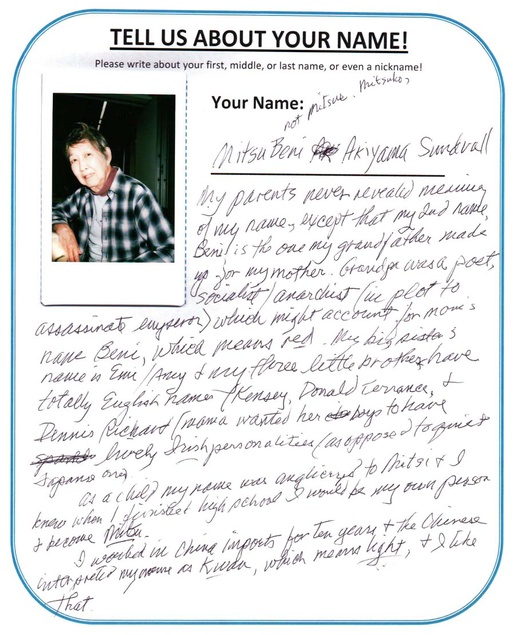 TELL US ABOUT YOUR NAME!
Please write about your first, middle, or last name, or even a nickname!
Your Name:
not Mitsue. Mitsuko,
Mitsu Beni Akiyama Sundvall
My parents never revealed meaning
of my name, except that my 2nd name,
Beni is the one my grandfather made
up for my mother. Grandpa was a poet,
socialist/anarchist (in plot to
assassinate emperor) which might account for mom's
name Beni, which means red. My big sister's
name is Emi/Amy & my three little brothers have
totally English names (Kensey, Donald Terrance, &
Dennis Richard (mama wanted her boys to have
lively Irish personalities (as opposed to quiet
Japanese one).
As a child my name was anglicized to Mitzi & I
knew when I finished high school I would be my own person
& become Mitsu.
I worked in China imports for ten years & the Chinese
interpreted my name as Kwan, which means light, & I like
that.